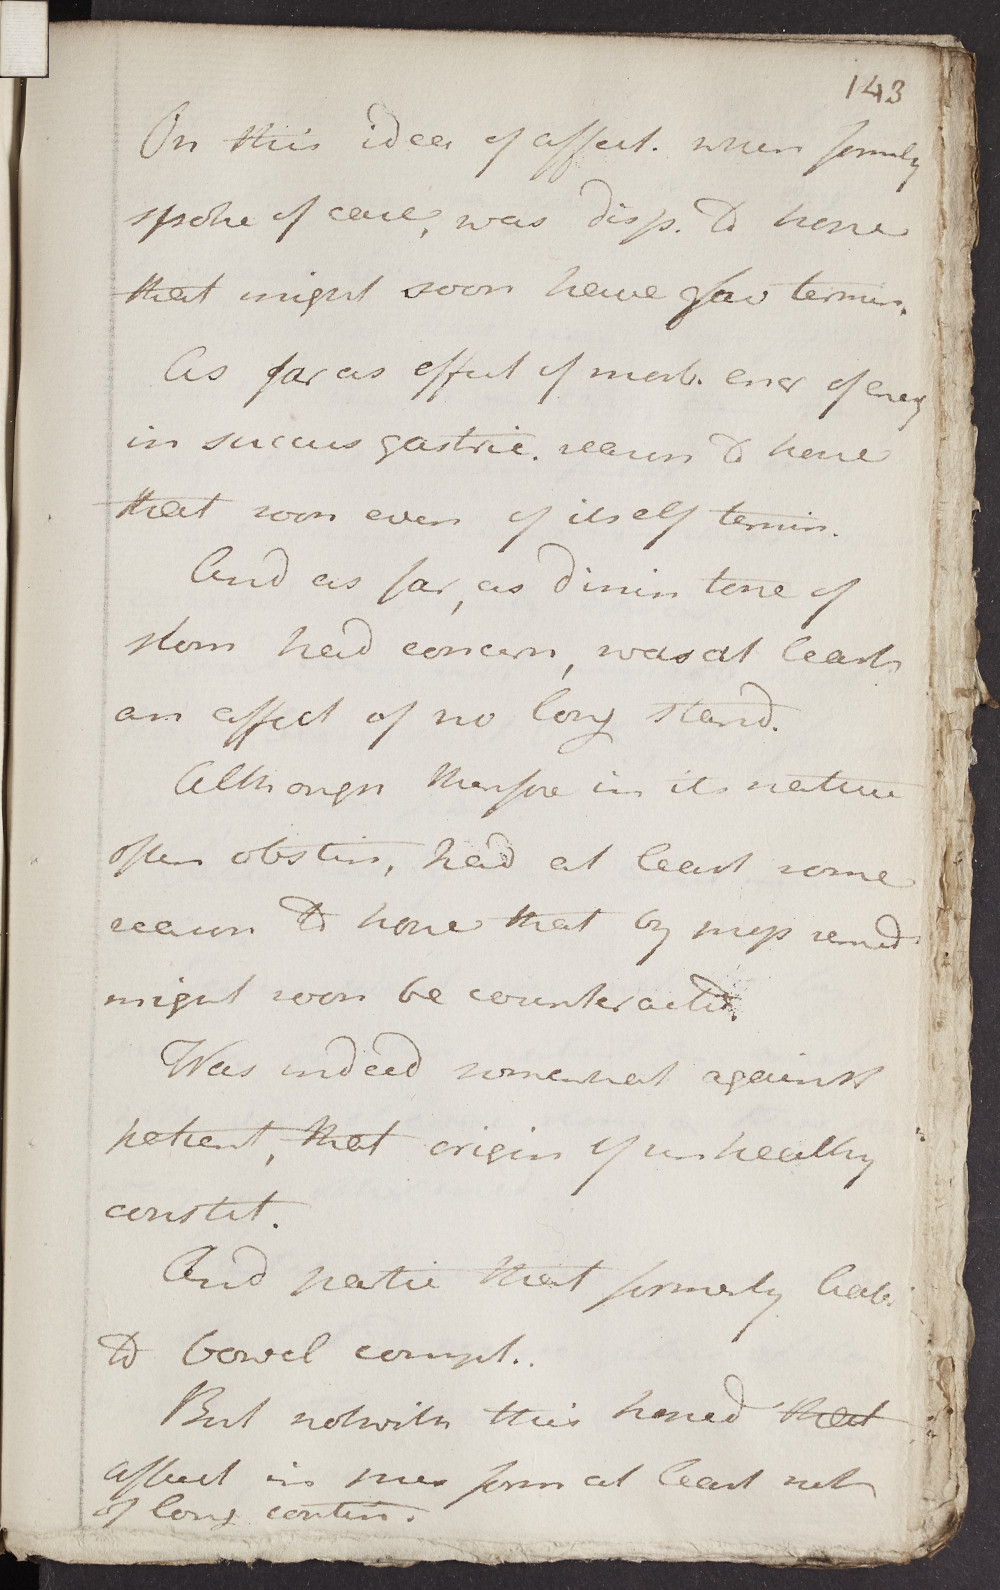 143
On this idea of affect. when formerly
spoke of case, was disp. to hope
that might soon have fav termin.
As far as effect of morb. of
in succus gastric. reason to hope
that soon even of itself termin.
And as far, as dimin tone of
stom had concern, was at least
an affect of no long stand.
Although therefore in its nature
often obstin, had at least some
reason to hope that by prop remed
might soon be counteracted.
Was indeed somewhat against
patient, that origin of unhealthy
constit.
And partic that formerly liab
to bowel compl..
But notwith this hoped that
affect in pres form at least not
of long contin.